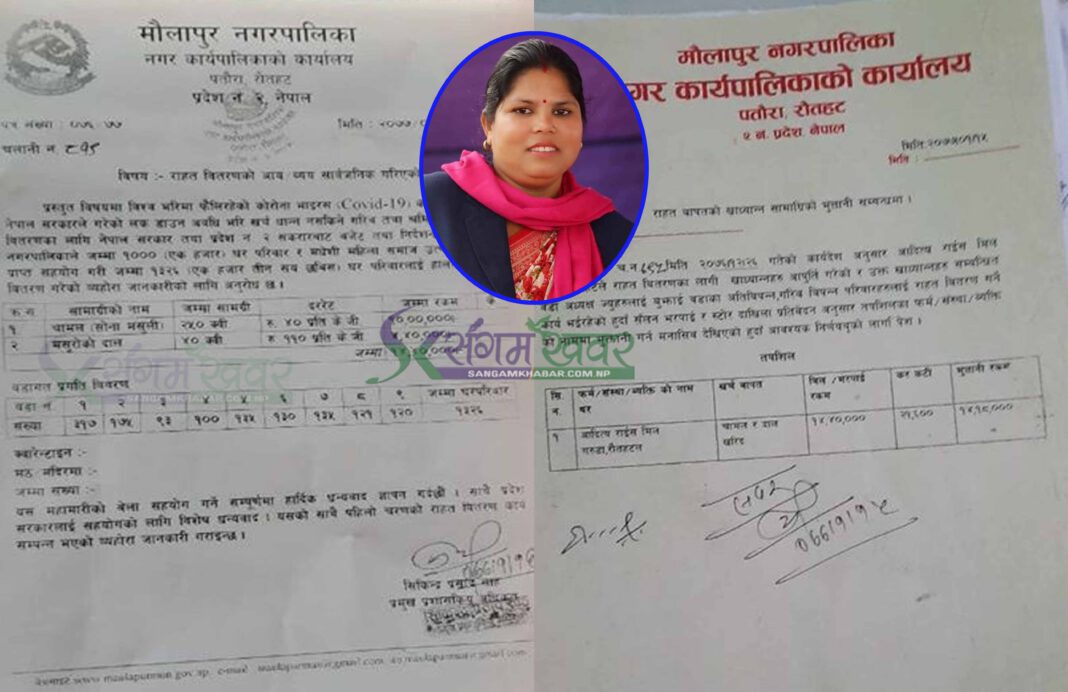 मौलापुर नगरपालिका
नगर कार्यपालिकाको कार्यालय
पतौरा, रौतहट
प्रदेश नं. २, नेपाल
पत्र संख्या : ०७६/७७
मिति : २०७७/०
चलानी नं
विषय :- राहत वितरणको आय/व्यय सार्वजनिक गरिएको
प्रस्तुत विषयमा विश्व भरिमा फैलिरहेको कोरोना भाइरस (Covid-19)
नेपाल सरकारले गरेको लक डाउन अवधि भरि खर्च धान्न नसकिने गरिब तथा
वितरणका लागि नेपाल सरकार तथा प्रदेश नं २ सकरारबाट बजेट तथा
नगरपालिकाले जम्मा १००० (एक हजार) घर परिवार र मधेशी महिला समाज
प्राप्त सहयोग गरी जम्मा १३२६ (एक हजार तीन सय छब्बिस) घर परिवारलाई
वितरण गरेको व्यहोरा जानकारीको लागि अनुरोध छ ।
सामाग्रीको नाम जम्मा सामग्री दररेट जम्मा रकम
१ चामल (सोना मसुली) २५० क्वी रु. ४० प्रति के जी १०,००,०००
२ मसुरीको दाल ४० क्वी रु ११० प्रति के जी
जम्मा
वडागत प्रगति विवरण
वडा नं १ २ ३ ४ ५ ६ ७ ८ ९ जम्मा घरपरिवार
संख्या ३१७ १७५ ९३ १०० १३५ १३० १३५ १२१ १२० १३२६
क्वारेन्टाइन :-
मठ मन्दिरमा :-
जम्मा संख्या :-
यस महामारीको बेला सहयोग गर्ने सम्पूर्णमा हार्दिक धन्यवाद ज्ञापन गर्दछौ । साथै प्रदेश
सरकारलाई सहयोगको लागि विशेष धन्यवाद । यसको साथै पहिलो चरणको राहत वितरण कार्य
सम्पन्न भएको व्यहोरा जानकारी गराइन्छ ।
साह
प्रमुख प्रशासकिय अधिकृत
मौलापुर नगरपालिका
नगर कार्यपालिकाको कार्यालय
पतौरा, रौतहट
२ नं. प्रदेश, नेपाल
मिति :
राहत बापतको खाद्यान्न सामाग्रिको भुक्तानी सम्बन्धमा ।
मिति २०७६/१२/२६ गतेको कार्यदेश अनुसार आदित्य राईस मिल
राहत वितरणका लागी खाद्यान्नहरु आपुर्ति गरेको र उक्त खाद्यान्नहरु सम्बन्धित
वडा अध्यक्ष ज्युहरुलाई बुझाई वडाका अतिविपन्न,गरिब विपन्न परिवारहरुलाई राहत वितरण गर्ने
कार्य भईरहेको हुदाँ संलग्न भरपाई र स्टोर दाखिला प्रतिवेदन अनुसार तपसिलका फर्म/संस्था/व्यक्ति
को नाममा भुक्तानी गर्न मनासिब देखिएको हुदाँ आवश्यक निर्णयको लागी पेश ।
तपशिल
सि. नं. फर्म/संस्था/व्यक्ति को नाम थर खर्च बापत बिल /भरपाई रकम कर कटी भुक्तानी रकम
१ आदित्य राईस मिल गरुडा,रौतहटल चामल र दाल खरिद १४,४०,००० २१,६०० १४,१८,०००
संगम खबर
SANGAMKHABAR.COM.NP